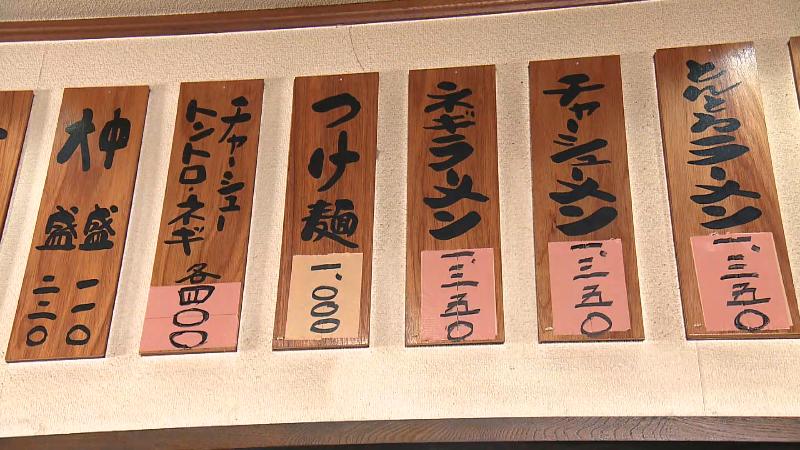 とんとろラーメン
一、三五〇
チャーシューメン
一、三五〇
ネギラーメン
一、三五〇
つけ麺
一、〇〇〇
チャーシュー
トントロ・ネギ
各四〇〇
中盛 一一〇
大盛 二二〇